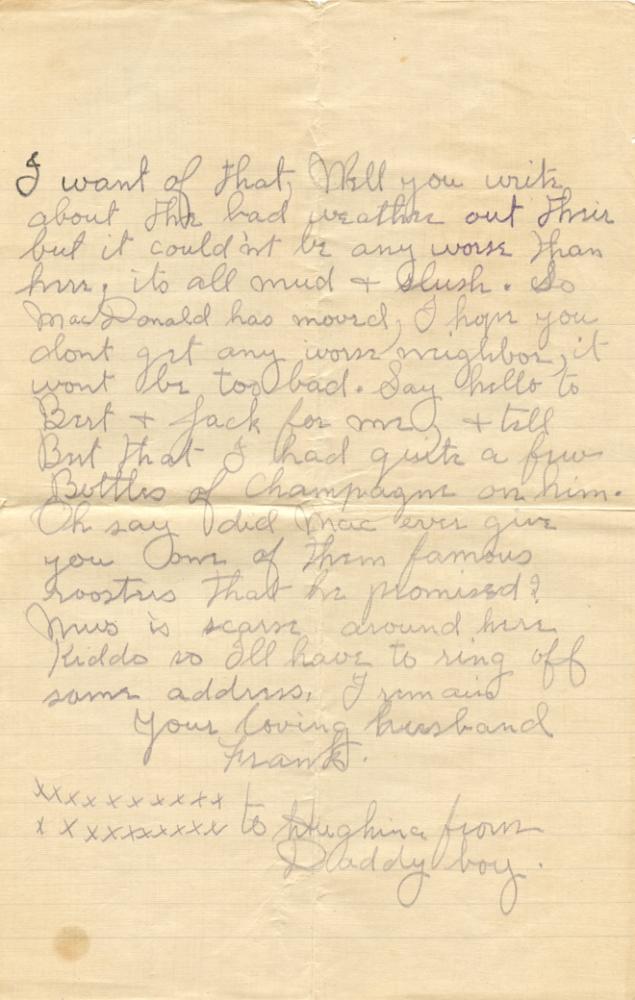 I want of that, Well you write
about the bad weather out their
but it could'nt be any worse than
here, its all mud + slush. So
MacDonald has moved, I hope you
dont get any worse neighbor, it
wont be too bad. Say hello to
Bert + Jack for me, + tell
Bert that I had quite a few
Bottles of Champagne on him.
Oh say did Mac ever give
you some of them famous
roosters that he promised?
News is scarse around here
Kiddo so Ill have to ring off
same address, I remain
Your loving husband
Frank.
xxxxxxxxxx
x x xxxxxxxx to Hughina from
Daddy boy.